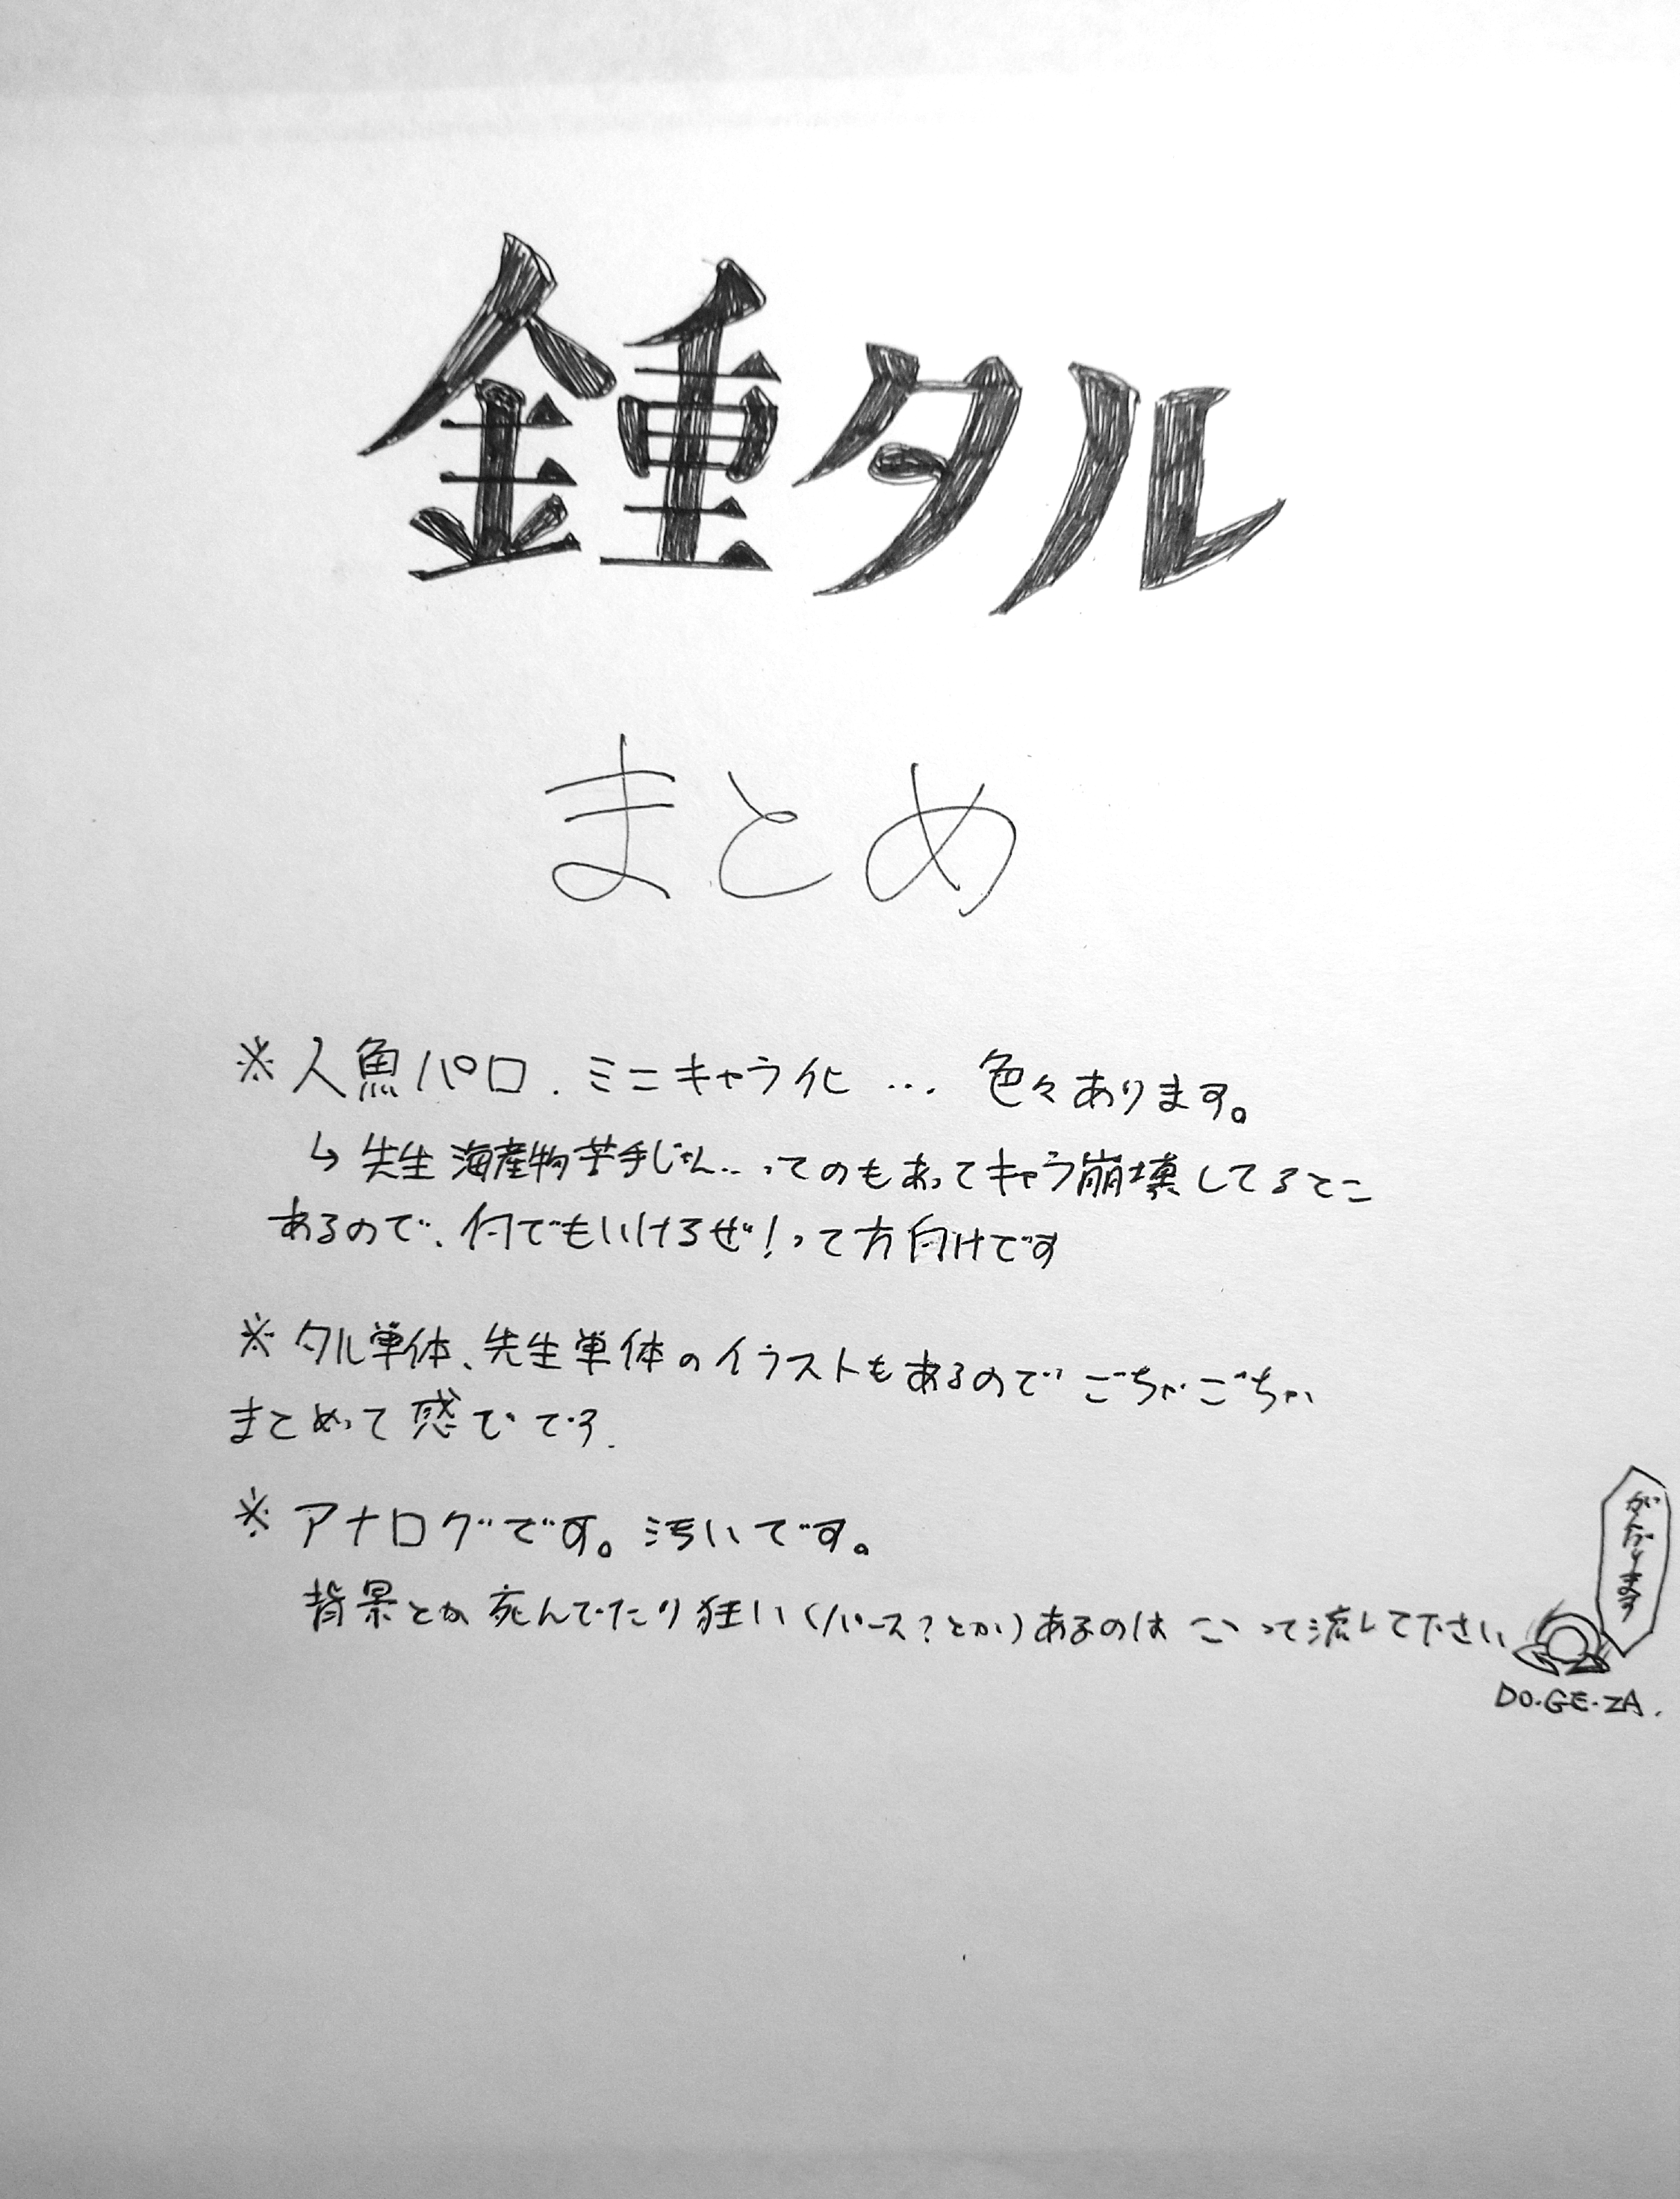 鍾タル
まとめ
※人魚パロ、ミニキャラ化… 色々あります。
↳先生海産物苦手じゃん…ってのもあってキャラ崩壊してるとこ
あるので、何でもいけるぜ!って方向けです
※タル単体、先生単体のイラストもあるのでごちゃごちゃ
まとめって感じです.
※アナログです。汚いです。
背景とか死んでたり狂い(パース?とか)あるのは そっ って流して下さい
DO・GE・ZA.